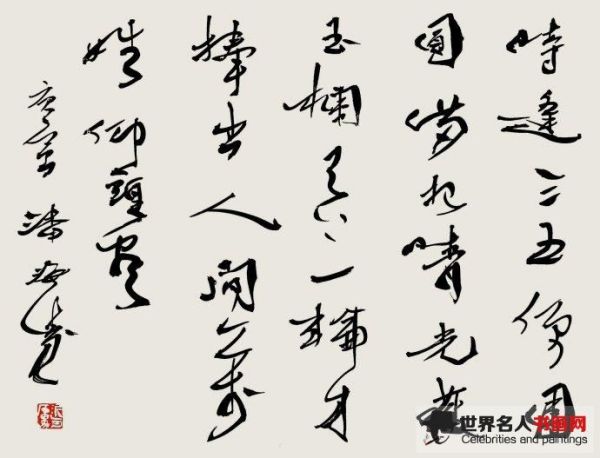 時逢三五便團
圓滿把晴光護
玉欄天上一輪才
捧出人間萬
姓仰頭看
庚寅 潘海
世界名人书画网
Celebrities and paintings